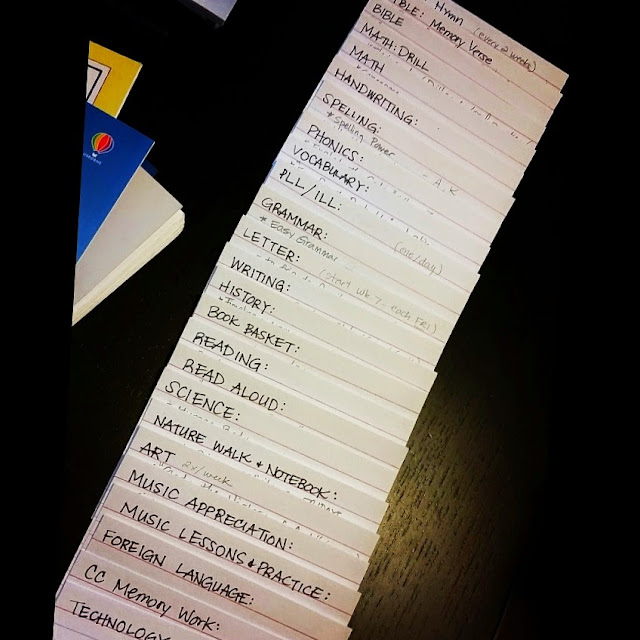 Hymn (every 2 weeks)
BIBLE: Memory Verse
BIBLE
MATH: DRILL
MATH
HANDWRITING:
SPELLING:
*Spelling Power
A, K
PHONICS:
VOCABULARY:
PLL/ILL:
GRAMMAR:
*Easy Grammar (one/day)
LETTER:
(start wk 7- each FRI)
WRITING:
HISTORY:
BOOK BASKET:
READING:
READ ALOUD:
SCIENCE:
NATURE WALK & NOTEBOOK:
ART 2x/week
MUSIC APPRECIATION:
MUSIC LESSONS & PRACTICE:
FOREIGN LANGUAGE:
CC Memory Work:
TECHNOLOGY